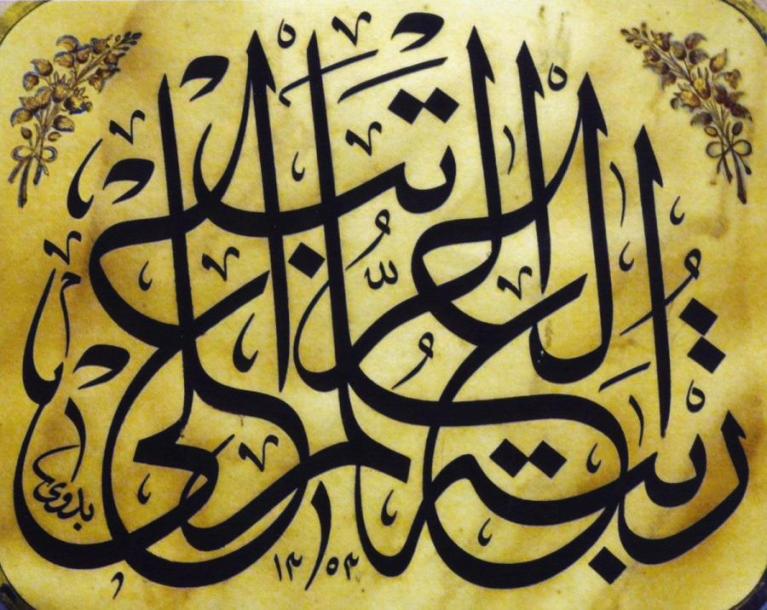 رتبة العلم أعلى الرتب
بدوي